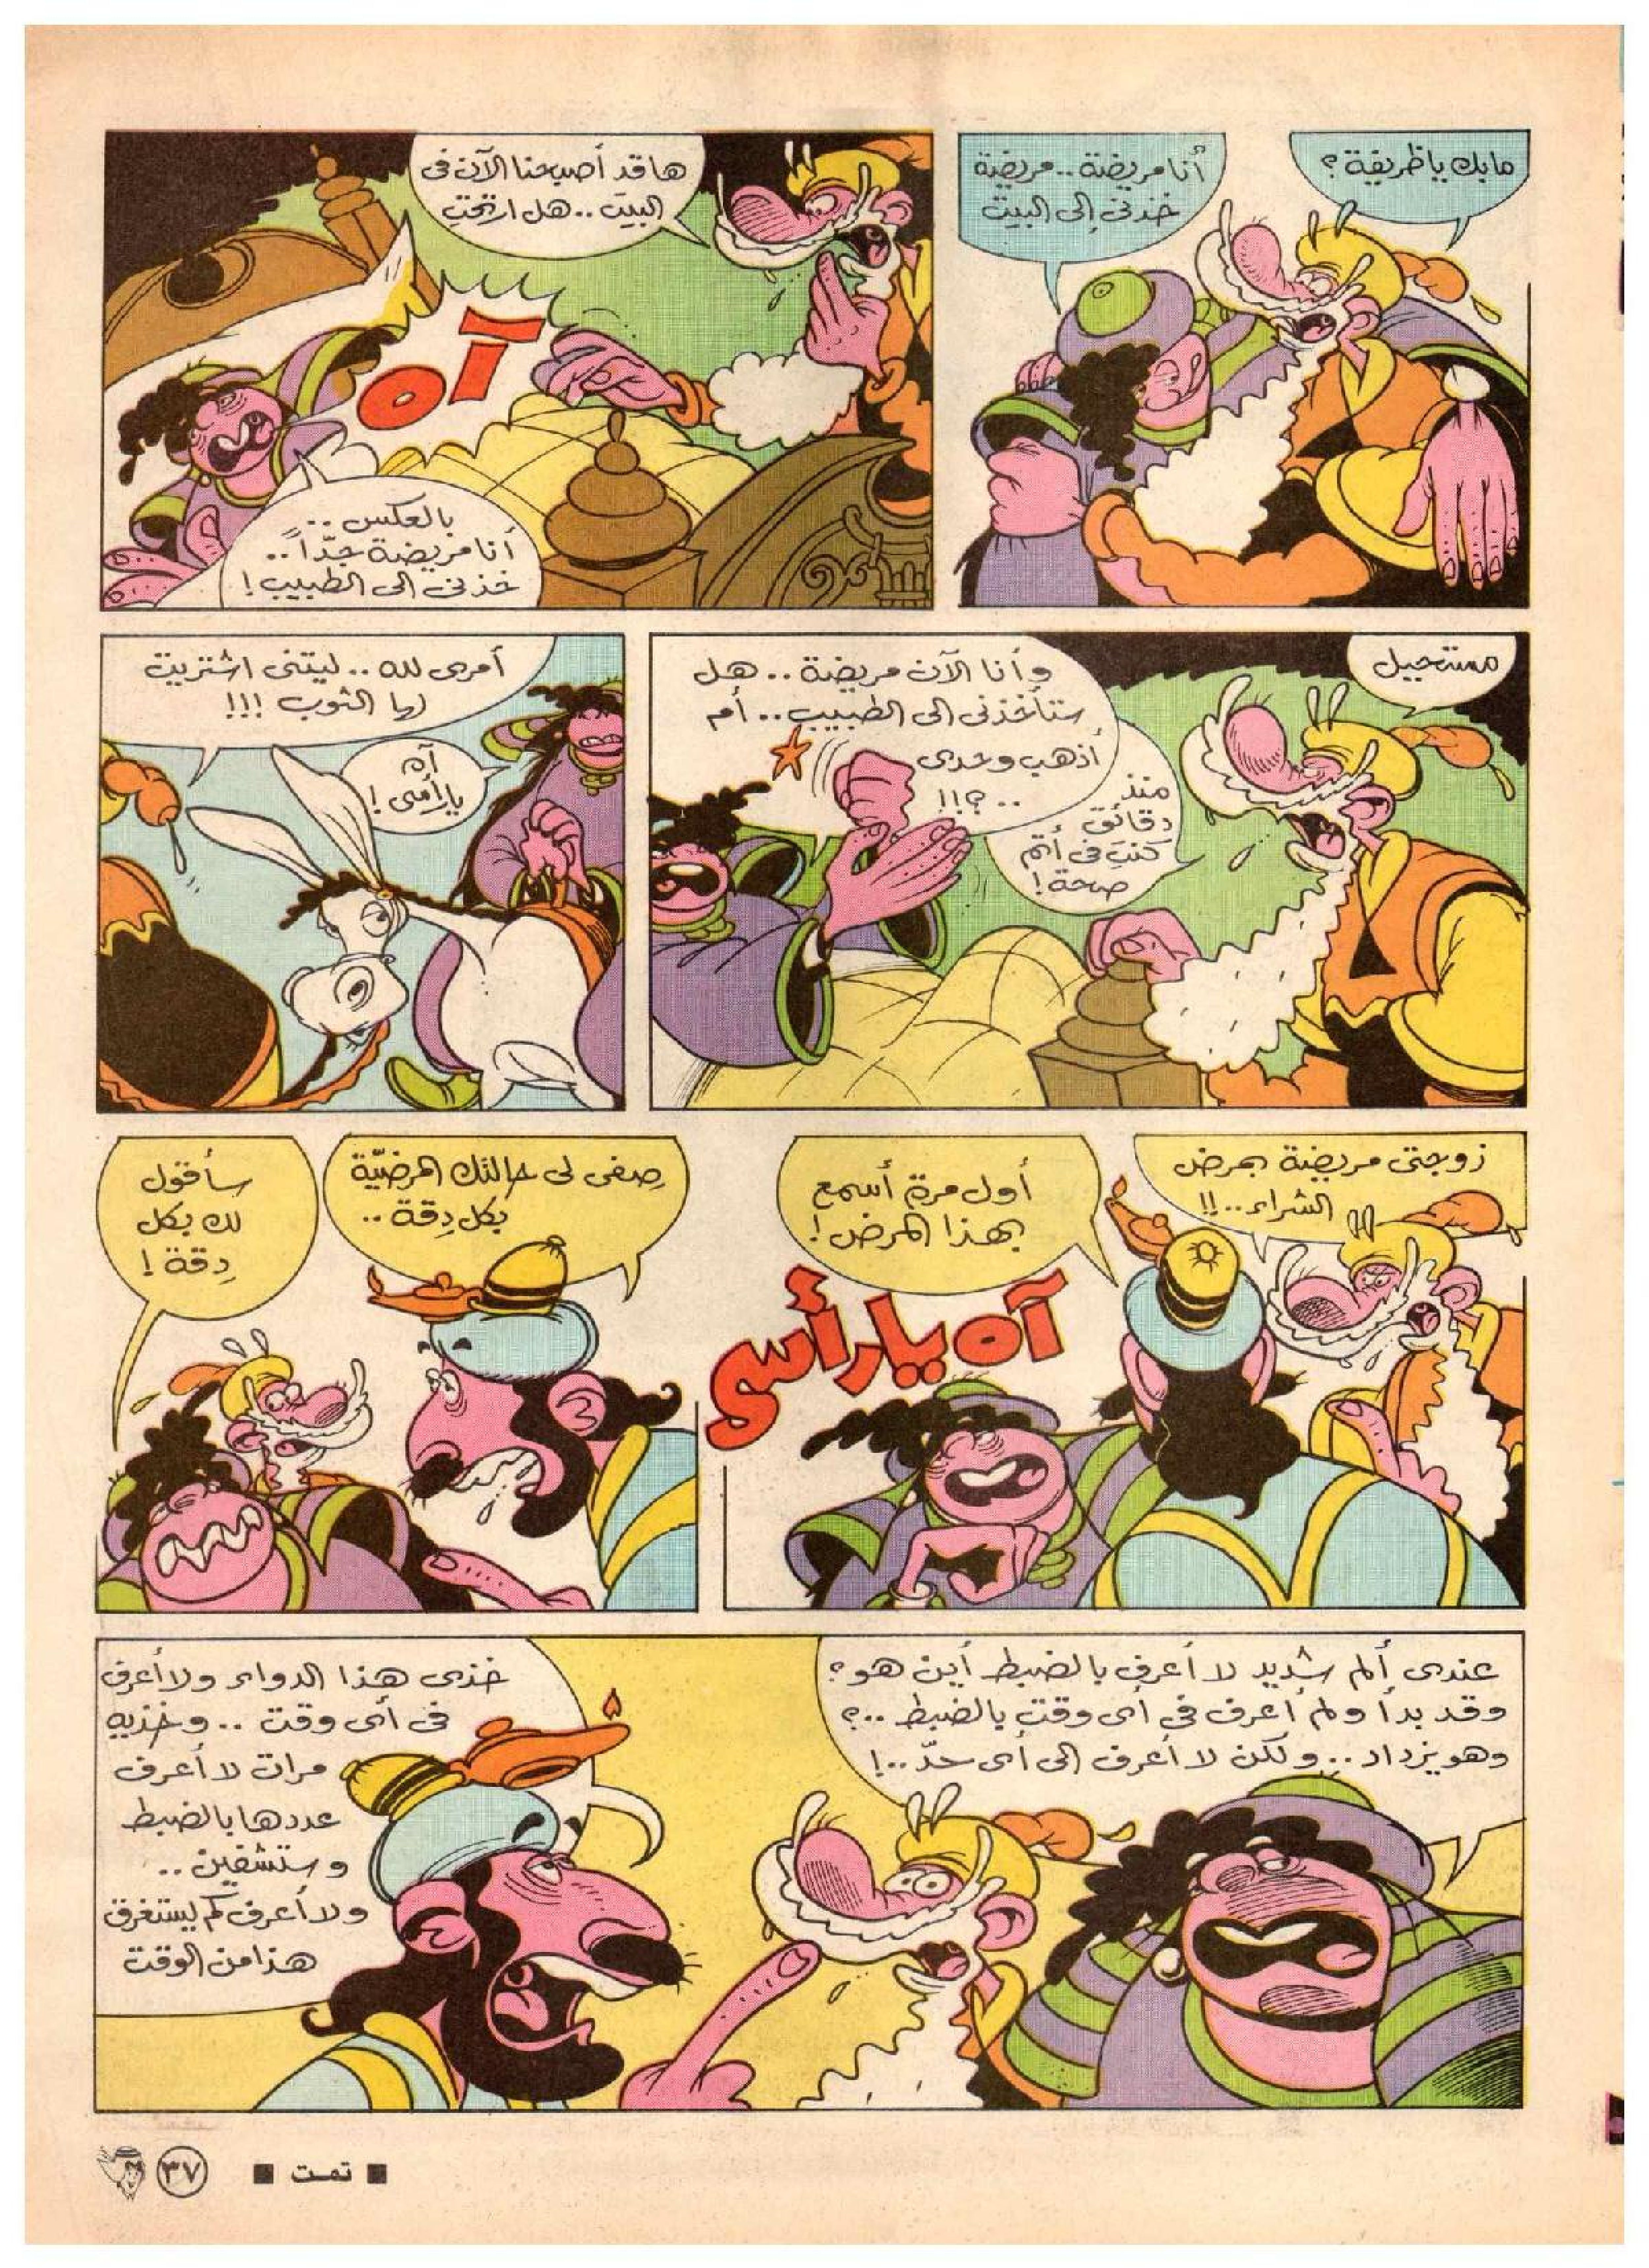 مابك يا ظريفة؟
أنا مريضة.. مريضة
خذنى إلى البيت
ها قد أصبحنا الآن فى
البيت.. هل ارتحتِ
آه
بالعكس..
أنا مريضة جدّاً..
خذنى الى الطبيب!
مستحيل
منذ
دقائق
كنتِ فى أتم
صحة!
وأنا الآن مريضة.. هل
ستأخذنى الى الطبيب.. أم
أذهب وحدى
..؟!!
أمرى لله.. ليتنى اشتريت
لها الثوب!!!
آه
يارأسى!
زوجتى مريضة بمرض
الشراء..!!
أول مرة أسمع
بهذا المرض!
آه يارأسى
صِفى لى حالتك المرضيّة
بكل دِقة..
سأقول
لك بكل
دِقة!
عندى ألم شديد لا أعرف بالضبط أين هو؟
وقد بدأ ولم أعرف فى أى وقت بالضبط..؟
وهو يزداد.. ولكن لا أعرف إلى أى حدّ..!
خذى هذا الدواء ولا أعرف
فى أى وقت.. وخذيه
مرات لا أعرف
عددها بالضبط
وستشفين..
ولا أعرف كم يستغرق
هذا من الوقت
■ تمت ■
٣٧